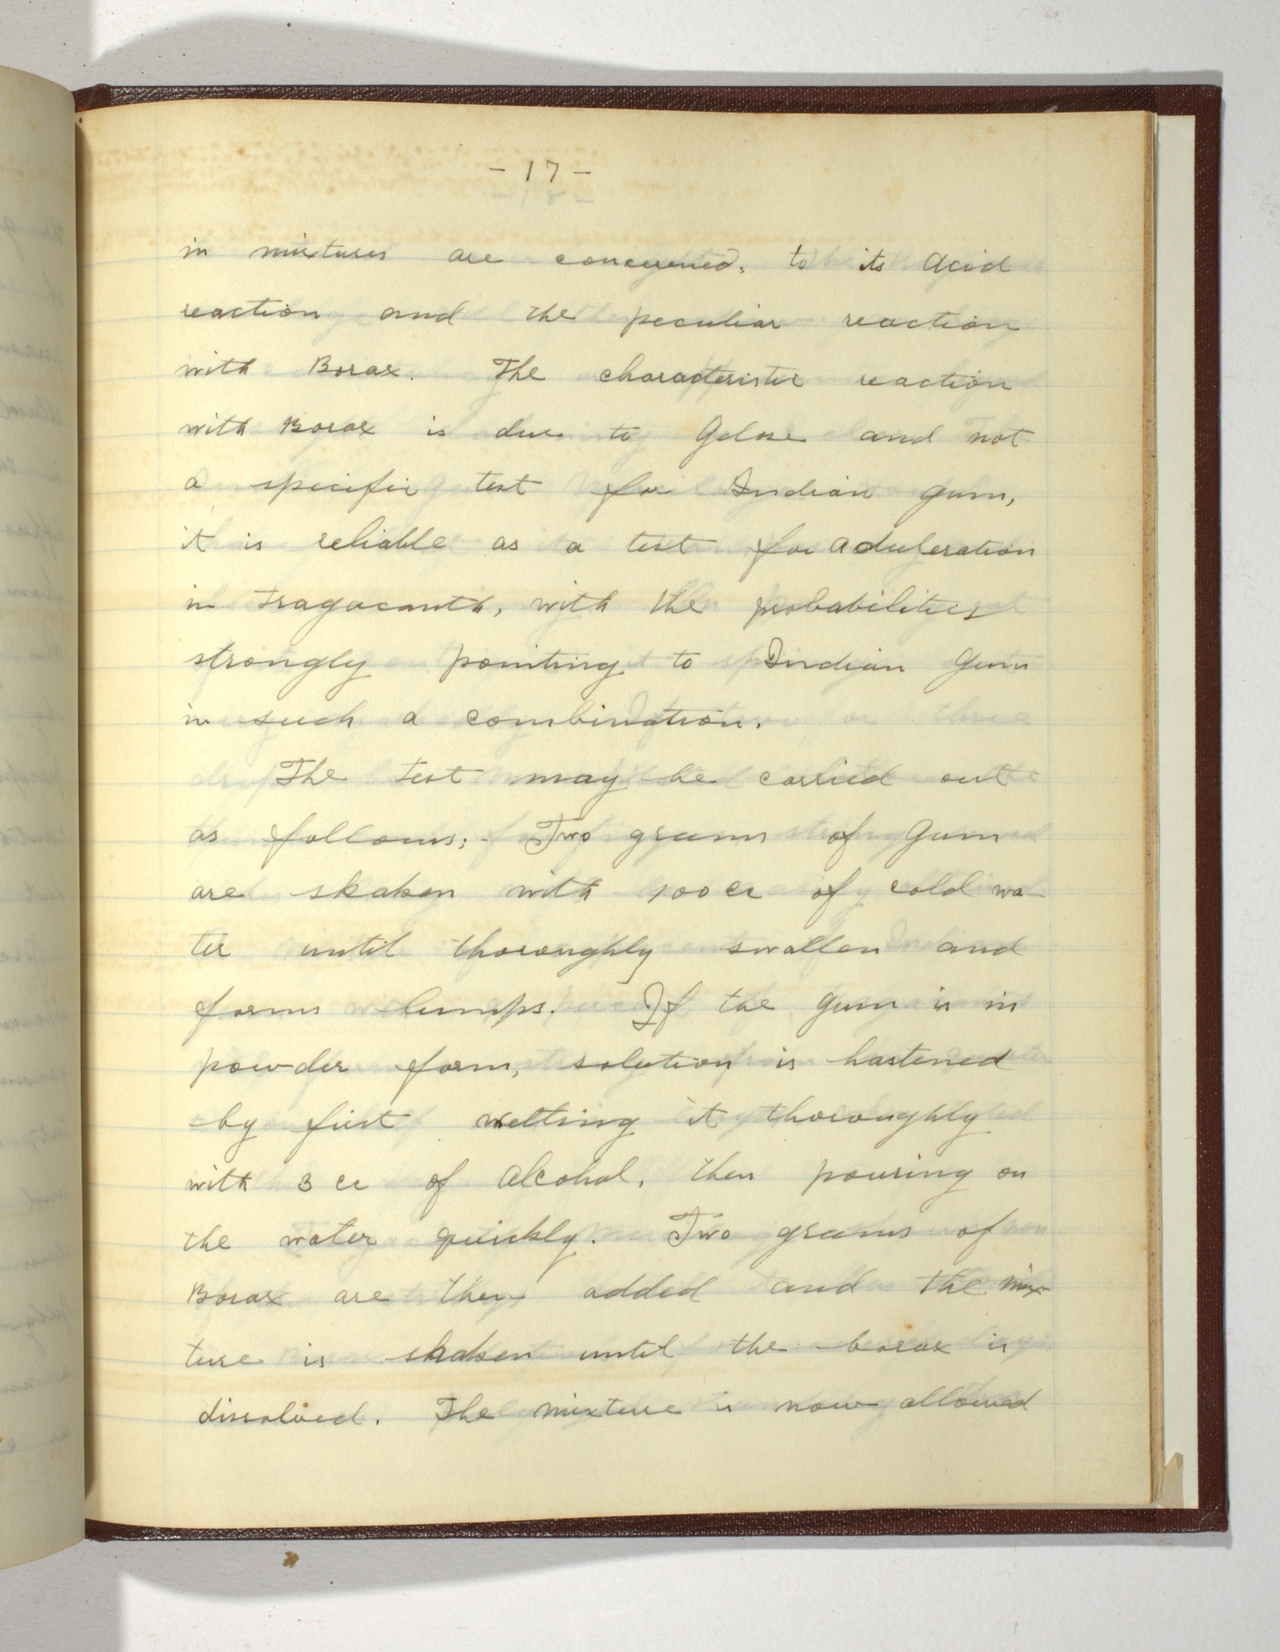 - 17 -
in mixtures are concerened, to its Acid
reaction and the peculiar reaction
with Borax. The characteristic reaction
with Borax is due to Gelose and not
a specific test for Indian gum,
it is reliable as a test for adulteration
in Tragacanth, with the probabilities
strongly pointing to Indian Gum
in such a combination.
The test may be carried out
as follows; - Two grams of Gum
are shaken with 100 cc of cold wa-
ter until thoroughly swollen and
forms lumps. If the Gum is in
powder form, solution is hastened
by first wetting it thoroughly
with 3 cc of Alcohol, then pouring on
the water quickly. Two grams of
Borax are then added and the mix-
ture is shaken until the borax is
dissolved. The mixture is now allowed